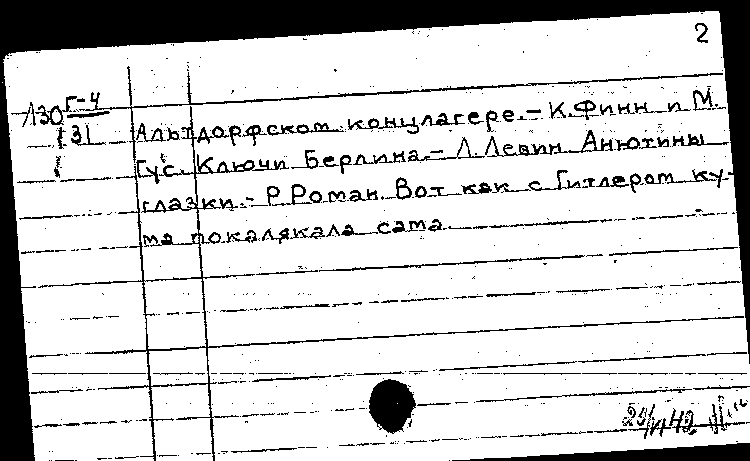 2
Л30 Г-4
31
Альтдорфском концлагере.- К. Финн и М.
Гус. Ключи Берлина.- Л. Левин. Анютины
глазки.- Р. Роман. Вот как с Гитлером ку-
ма покалякала сама.